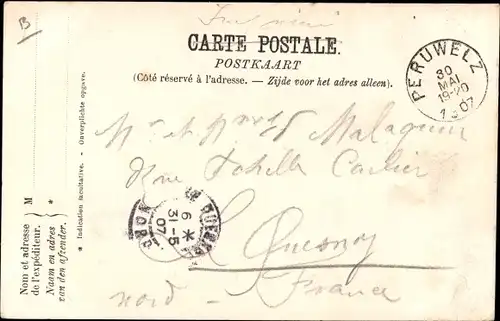 B
CARTE POSTALE.
POSTKAART
(Côté réservé à l'adresse. — Zijde voor het adres alleen).
PERUWELZ
30
MAI
19-20
1907
Malaquin
Rue Achille Carlier
Le Quesnoy
Nord - France
6 *
31-5
07
NORD
* Indication facultative. - Onverplichte opgave.
Nom et adresse de l'expéditeur. } M
Naam en adres van den afzender. } *